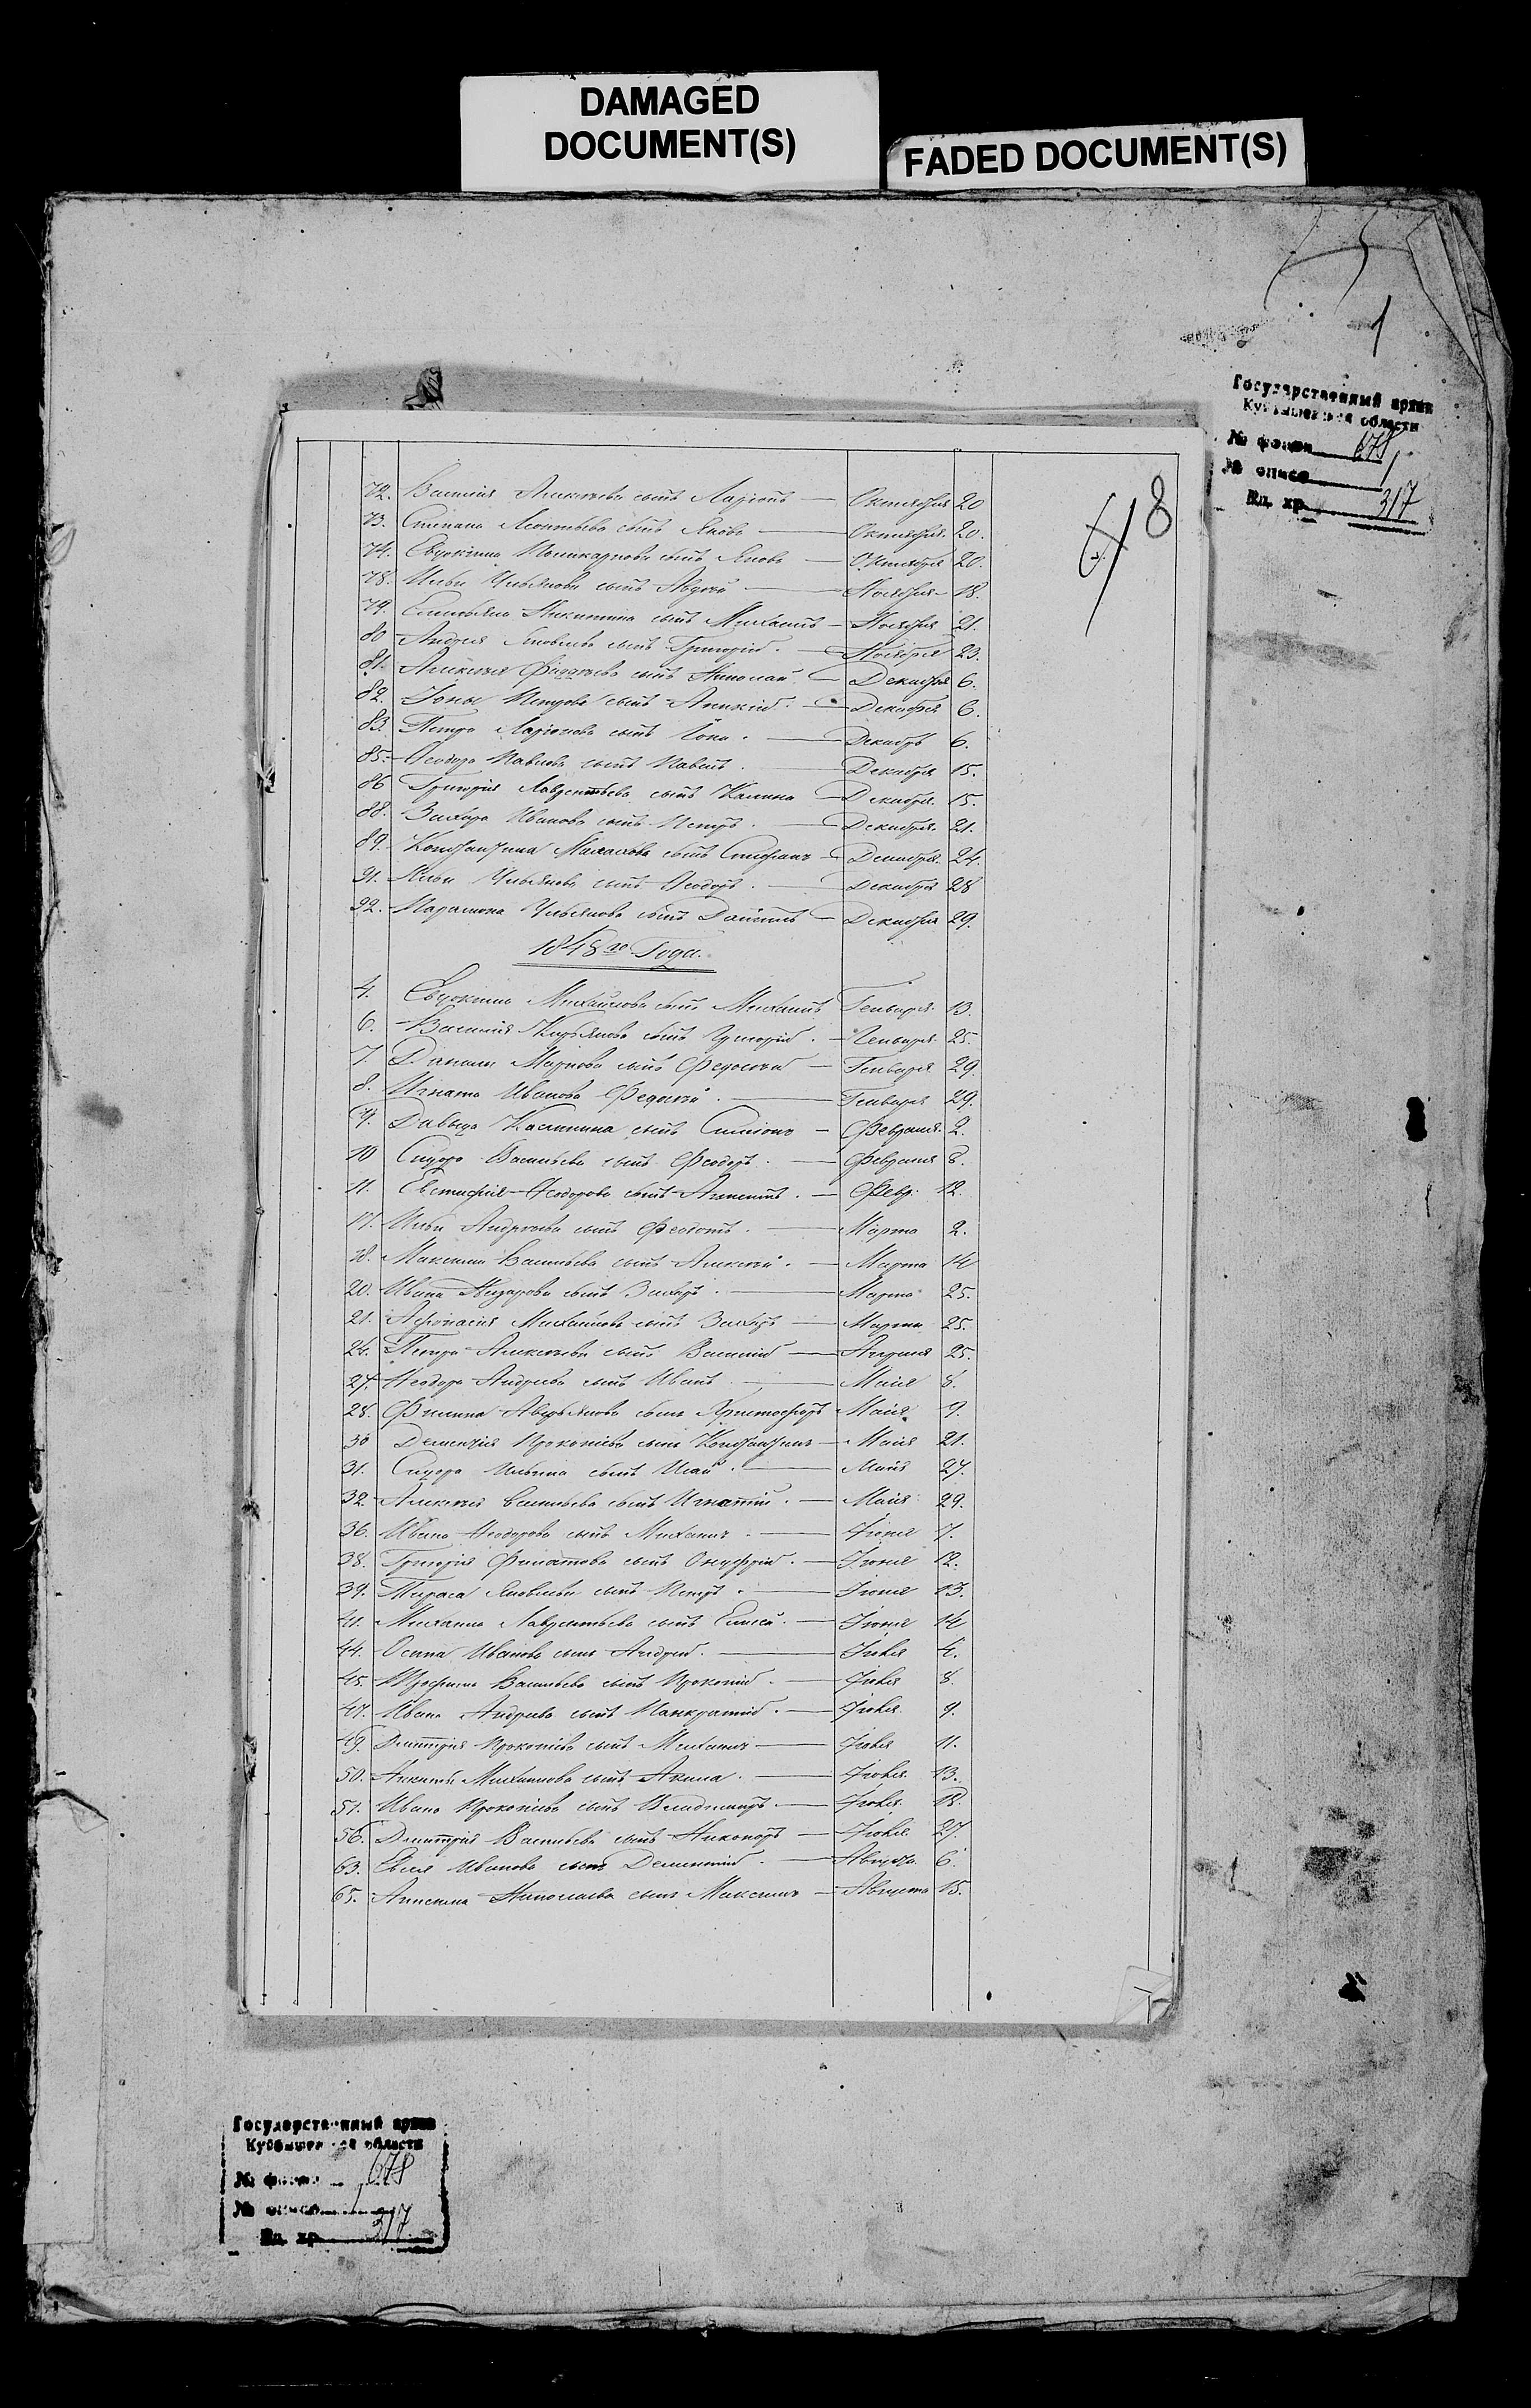 DAMAGED
DOCUMENT(S)
FADED DOCUMENT(S)
1
Государственный архив
Куйбышевской области
№ фонда 678
№ описи 1
Ед. хр. 317
8
72. Василия Алексѣева сынъ Ларіонъ — Октября 20
73. Степана Леонтьева сынъ Яковъ — Октября 20.
74. Евдокима Поликарпова сынъ Яковъ — Октября 20.
78. Ильи Ульянова сынъ Авдѣй — Ноября 18.
79. Емельяна Никитина сынъ Михаилъ — Ноября 21.
80 Андрея Яковлева сынъ Григорій. — Ноября 23.
81. Алексѣя сынъ Николай. — Декабря 6.
82. Іоны Петрова сынъ — Декабря 6.
83. Петра Ларіонова сынъ Іона. — Декабрь 6.
85. Ѳеодора Павлова сынъ Павелъ. Декабря 15.
86 Григорія Лаврентьева сынъ Калина — Декабря. 15.
88. Захара Иванова сынъ Петръ. — Декабря. 21.
89. Константина сынъ Стефанъ — Декабря. 24.
91. Ильи Ульянова сынъ Ѳеодоръ. — Декабря 28
92. Парамона Ульянова сынъ Даніилъ — Декабря 29.
1848го Года.
4. Евдокима Михайлова сынъ Михаилъ Генваря. 13.
6. Василия сынъ Григорій. — Генваря. 25.
7. Данилы Маркова сынъ Федосѣй — Генваря 29
8. Игната Иванова Федосѣй. — Генваря 29.
9. Давыда Калинина сынъ Симіонъ — Февраля. 2.
10 Сидора Васильева сынъ Феодоръ. — Февраля 8.
11. Евстифія Ѳеодорова сынъ. — Февр. 12.
17. Ильи Андреева сынъ Феодотъ. — Марта 2.
18. Максима Васильева сынъ Алексѣй. — Марта 14
20. Ивана Назарова сынъ Захаръ. — Марта 25.
21. Афонасія Михайлова сынъ Захаръ — Марта 25.
24. Петра Алексѣева сынъ Василій — Апреля 25.
27. Ѳеодора Андреева сынъ Иванъ — Маія 8.
28. Филипа Аверьянова сынъ Христофоръ Маія 9.
30 Дементія Прокопіева сынъ Константинъ — Маія 21.
31. Сидора Ильина сынъ Исай. — Маія 27.
32. Алексѣя Васильева сынъ Игнатій. — Маія 29.
36. Ивана Ѳеодорова сынъ Михаилъ. — Іюня 7.
38. Григорія Филатова сынъ Онуфрій. — Іюня 12.
39. Тараса Яковлева сынъ Петръ. — Іюня 13.
41. Михаила Лаврентьева сынъ Елисей. — Іюня 14
44. Осипа Иванова сынъ Андрей. — Іюля 4.
45. Трофима Васильева сынъ Прокопій. — Іюля 8.
47. Ивана Андреева сынъ Панкратій. — Іюля. 9.
49. Дмитрія Прокопіева сынъ Михаилъ — Іюля 11.
50. Михайлова сынъ Акила. — Іюля. 13.
51. Ивана Прокопіева сынъ Владимиръ — Іюля. 18.
56. Дмитрія Васильева сынъ Никаноръ — Іюля. 27.
63. Иванова сынъ Дементій. — Августа. 6.
65. Николаева сынъ Максимъ — Августа 15.
Государственный архив
Куйбышевской области
№ фонда 678
№ описи 1
Ед. хр. 317